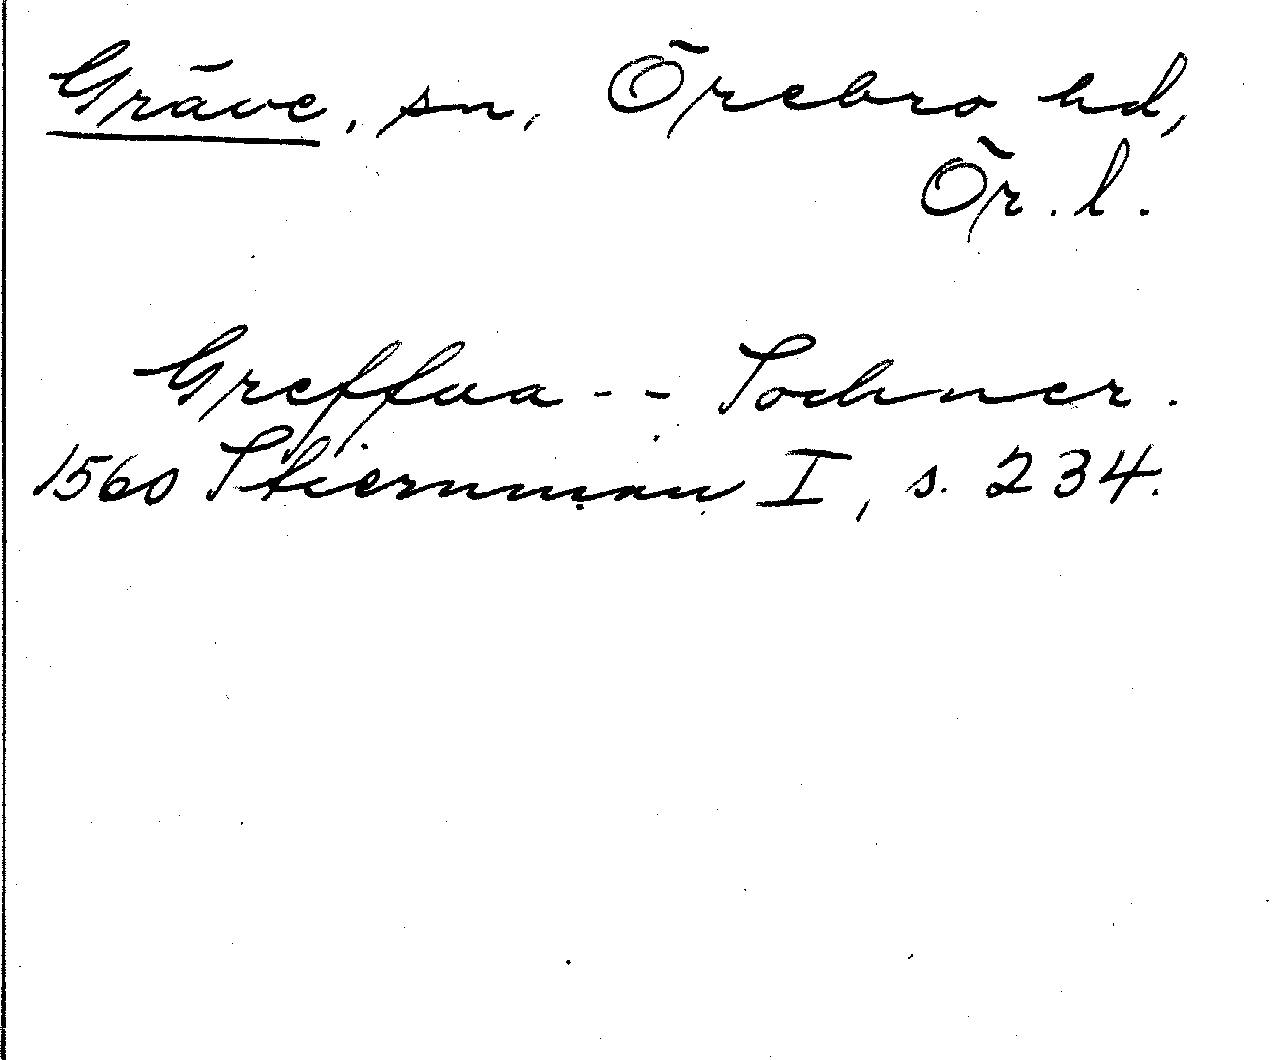 Gräve, sn, Örebro hd,
Ör. l.
Greffua -- Sochner.
1560 Stiernman I, s. 234.